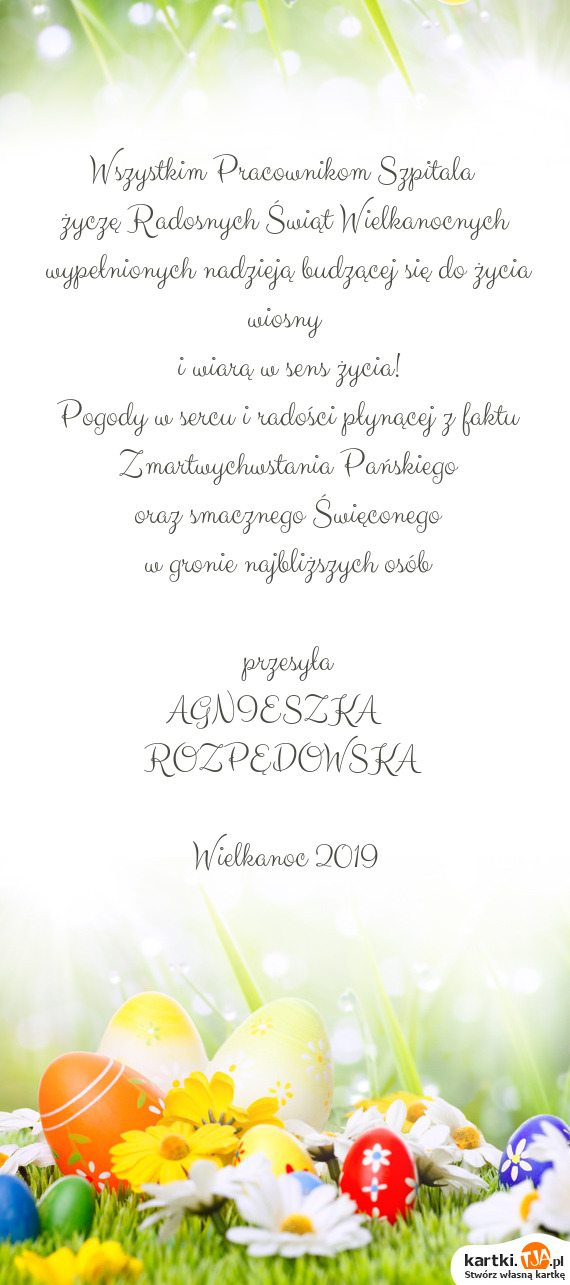 Wszystkim Pracownikom Szpitala
życzę Radosnych Świąt Wielkanocnych
wypełnionych nadzieją budzącej się do życia
wiosny
i wiarą w sens życia!
Pogody w sercu i radości płynącej z faktu
Zmartwychwstania Pańskiego
oraz smacznego Święconego
w gronie najbliższych osób
przesyła
AGNIESZKA
ROZPĘDOWSKA
Wielkanoc 2019
kartki.TJA.pl
Stwórz własną kartkę